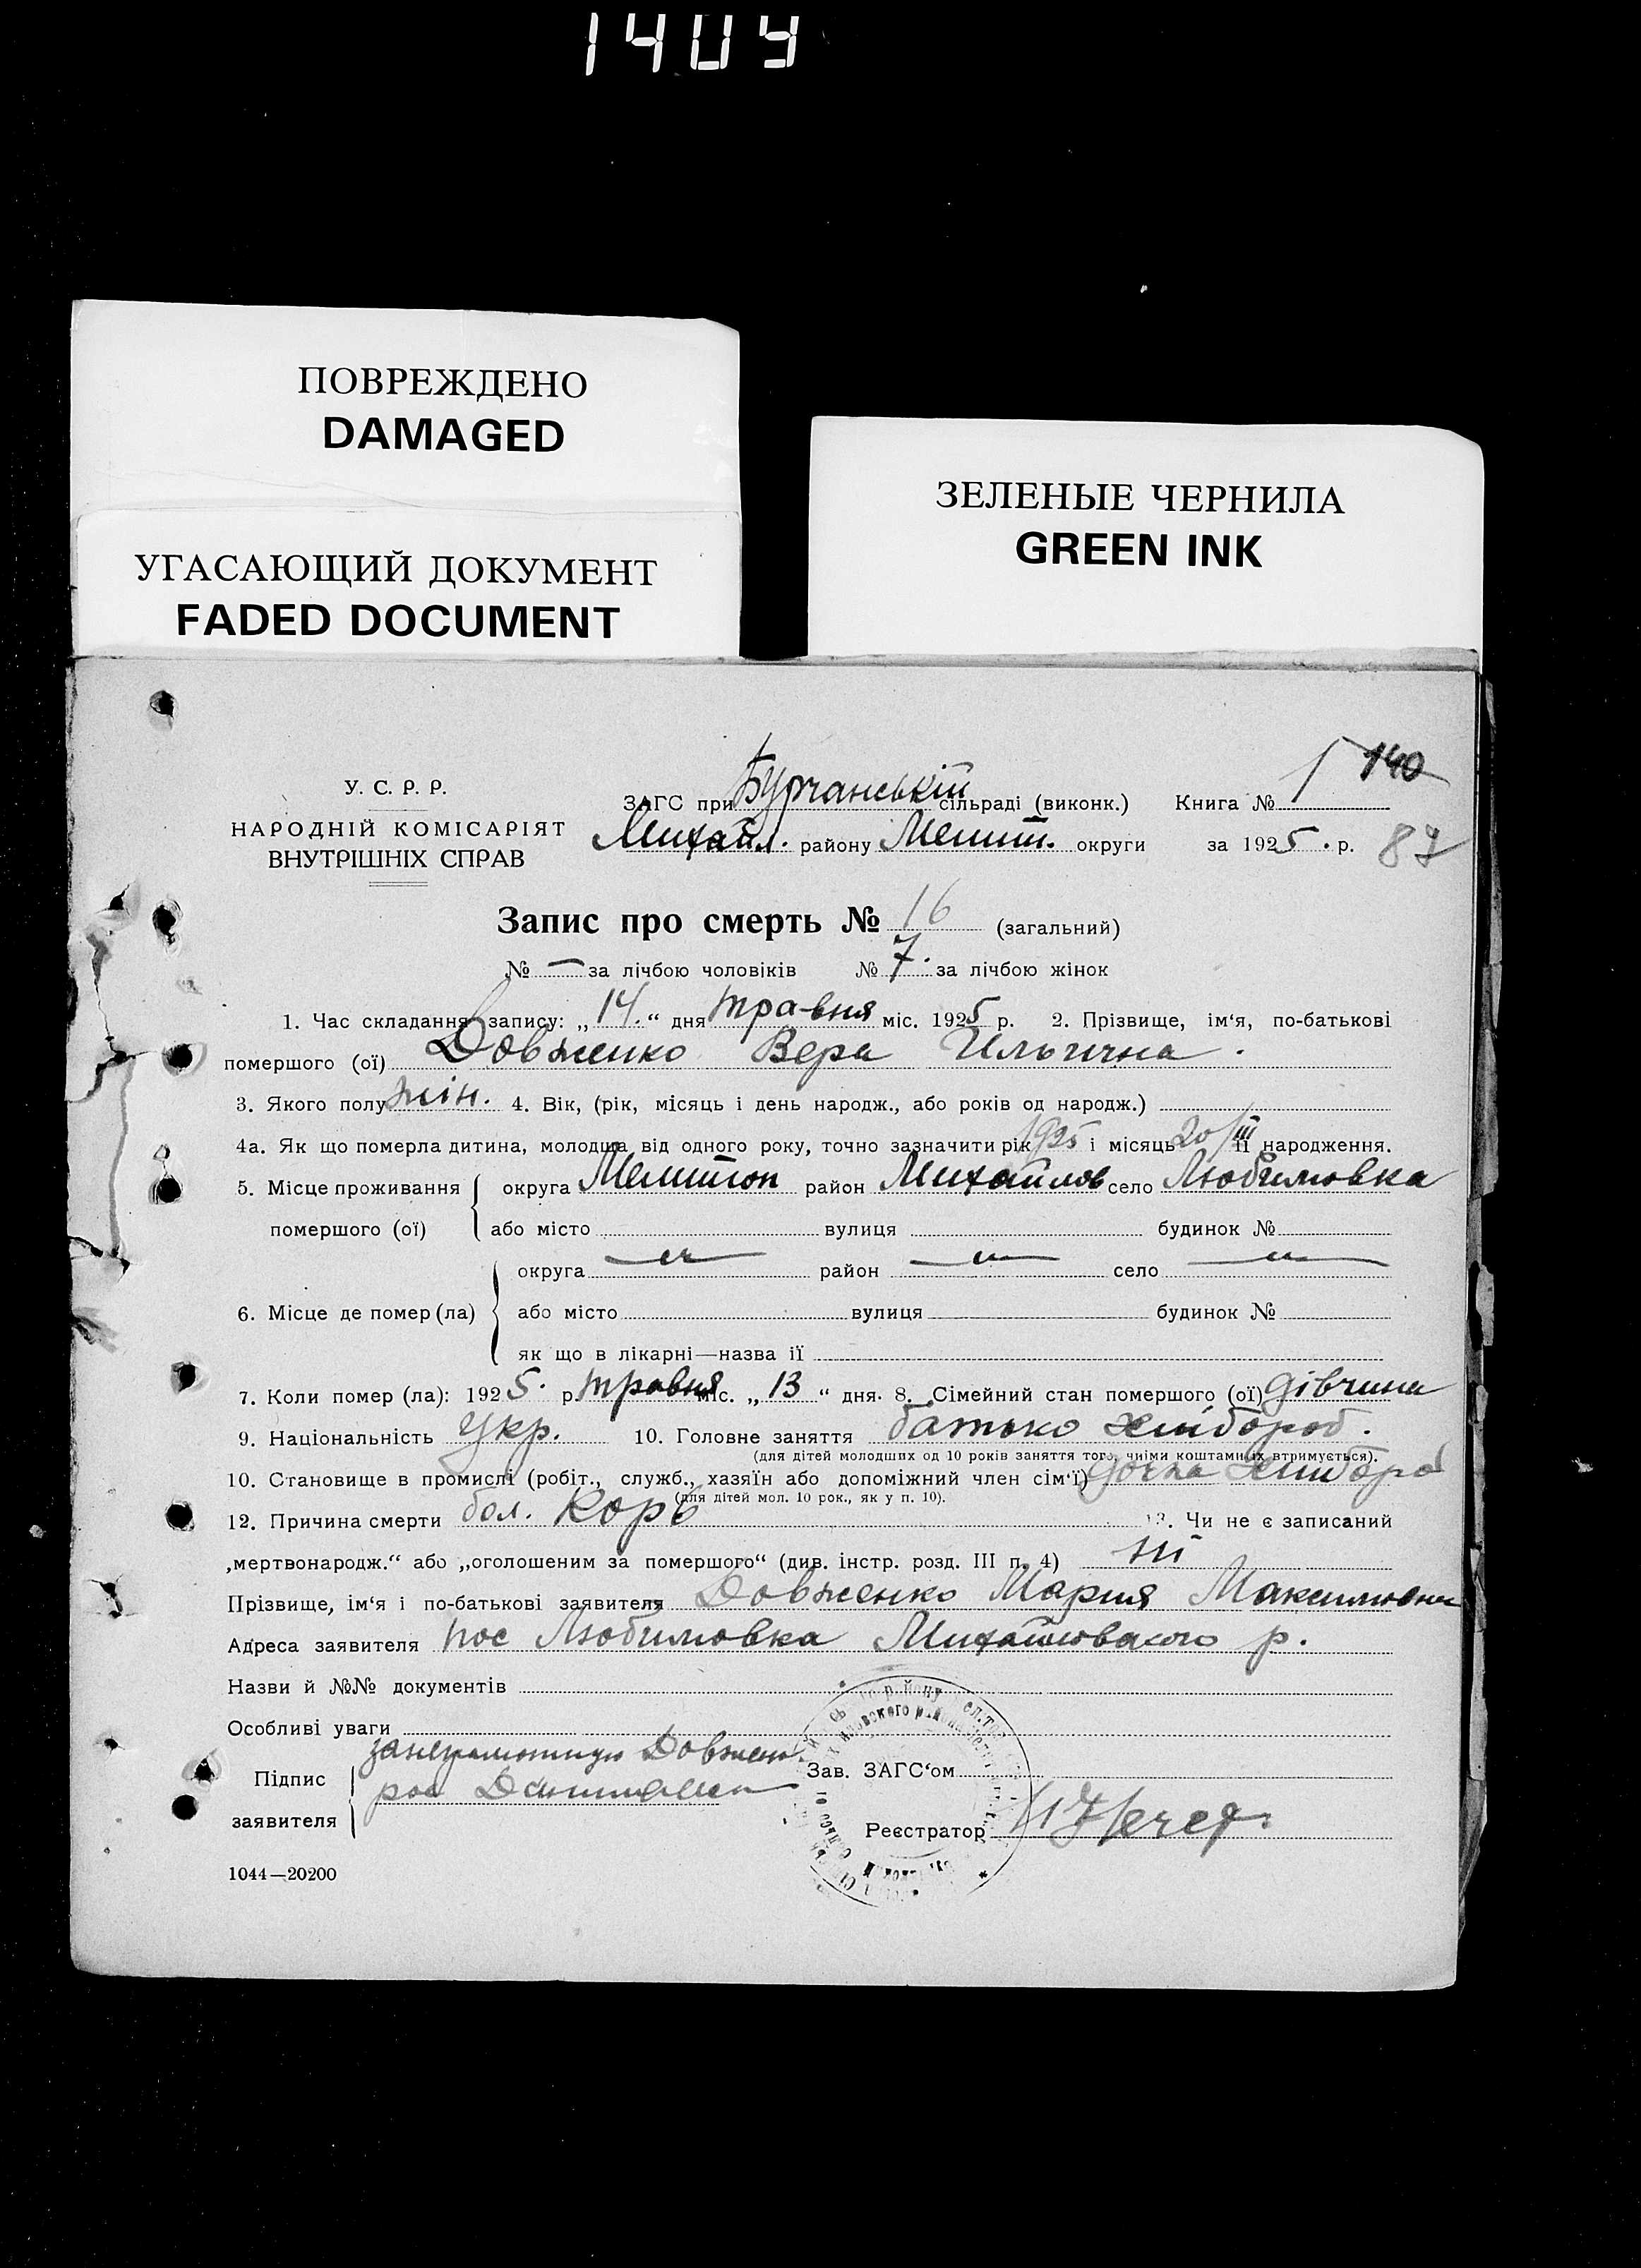 1409
ПОВРЕЖДЕНО
DAMAGED
УГАСАЮЩИЙ ДОКУМЕНТ
FADED DOCUMENT
ЗЕЛЕНЫЕ ЧЕРНИЛА
GREEN INK
У. С. Р. Р.
НАРОДНІЙ КОМІСАРІЯТ
ВНУТРІШНІХ СПРАВ
ЗАГС при Бурчанській сільраді (виконк.) Книга № 1 140
Михайл. району Мелит. округи за 1925 р. 87
Запис про смерть № 16 (загальний)
№ — за лічбою чоловіків № 7. за лічбою жінок
1. Час складання запису: „14.“ дня травня міс. 1925 р. 2. Прізвище, ім‘я, по-батькові
помершого (ої) Довженко Вера Ильична.
3. Якого полу жін. 4. Вік, (рік, місяць і день народж., або років од народж.)
4а. Як що померла дитина, молодша від одного року, точно зазначити рік 1925 і місяць 20/III її народження.
5. Місце проживання помершого (ої) округа Мелитоп район Михайлов село Любимовка
або місто вулиця будинок №
округа —„— район —„— село —„—
6. Місце де помер (ла) або місто вулиця будинок №
як що в лікарні—назва її
7. Коли помер (ла): 1925. р. травня міс. „13“ дня. 8. Сімейний стан помершого (ої) дівчина
9. Національність Укр. 10. Головне заняття батько хлібороб.
(для дітей молодших од 10 років заняття того, чиїми коштами їх втримується).
10. Становище в промислі (робіт., служб., хазяїн або допоміжний член сім‘ї) дочка хлібороб
(для дітей мол. 10 рок., як у п. 10).
12. Причина смерти бол. Корь 13. Чи не є записаний
„мертвонародж.“ або „оголошеним за помершого“ (див. інстр. розд. III п. 4) ні
Прізвище, ім‘я і по-батькові заявителя Довженко Мария Максимовна
Адреса заявителя пос Любимовка Михайловского р.
Назви й №№ документів
Особливі уваги
Підпис заявителя занеграмотную Довженко
рос
Зав. ЗАГС‘ом
Реєстратор
1044—20200